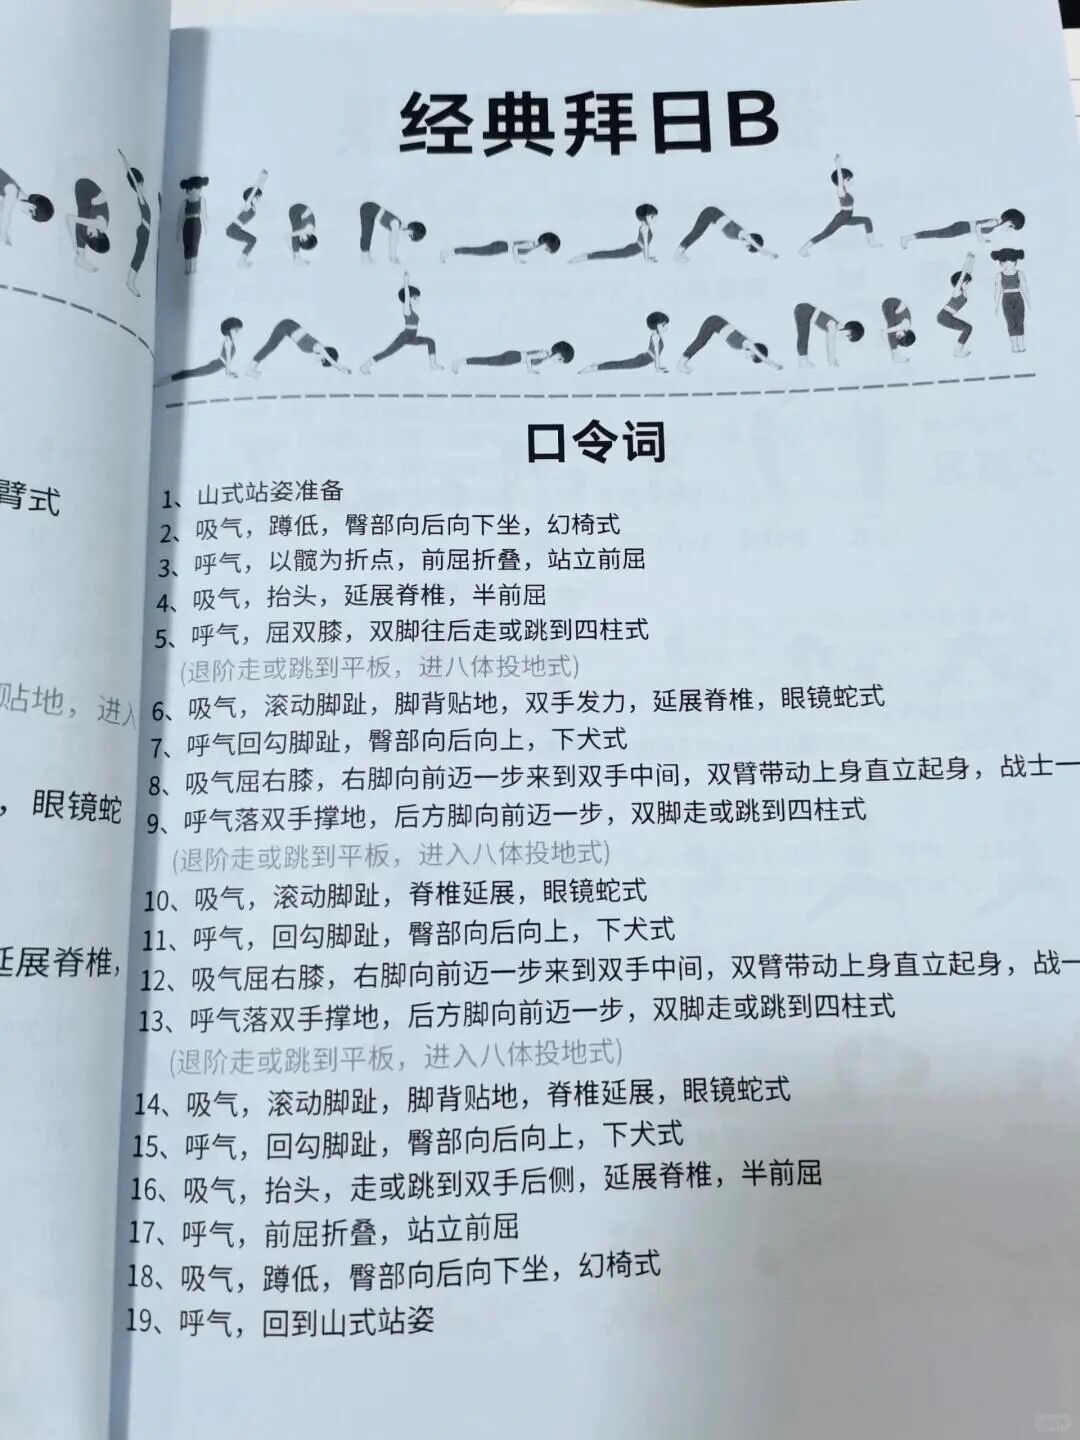 经典拜日B
口令词
1、山式站姿准备
2、吸气，蹲低，臀部向后向下坐，幻椅式
3、呼气，以髋为折点，前屈折叠，站立前屈
4、吸气，抬头，延展脊椎，半前屈
5、呼气，屈双膝，双脚往后走或跳到四柱式
(退阶走或跳到平板，进八体投地式)
6、吸气，滚动脚趾，脚背贴地，双手发力，延展脊椎，眼镜蛇式
7、呼气回勾脚趾，臀部向后向上，下犬式
8、吸气屈右膝，右脚向前迈一步来到双手中间，双臂带动上身直立起身，战士一
9、呼气落双手撑地，后方脚向前迈一步，双脚走或跳到四柱式
(退阶走或跳到平板，进入八体投地式)
10、吸气，滚动脚趾，脊椎延展，眼镜蛇式
11、呼气，回勾脚趾，臀部向后向上，下犬式
12、吸气屈右膝，右脚向前迈一步来到双手中间，双臂带动上身直立起身，战一
13、呼气落双手撑地，后方脚向前迈一步，双脚走或跳到四柱式
(退阶走或跳到平板，进入八体投地式)
14、吸气，滚动脚趾，脚背贴地，脊椎延展，眼镜蛇式
15、呼气，回勾脚趾，臀部向后向上，下犬式
16、吸气，抬头，走或跳到双手后侧，延展脊椎，半前屈
17、呼气，前屈折叠，站立前屈
18、吸气，蹲低，臀部向后向下坐，幻椅式
19、呼气，回到山式站姿
臂式
贴地，进入
，眼镜蛇
延展脊椎，